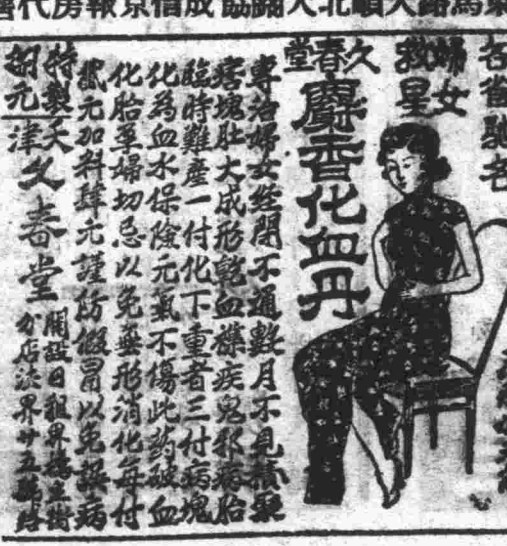 馬路大順北大關協成信京報房代售
各省馳名
婦女
救星
久春堂
麝香化血丹
專治婦女經閉不通數月不見積聚
痞塊肚大成形乾血癆疾鬼邪病胎
臨時難產一付化下重者三付病塊
化為血水保險元氣不傷此葯破血
化胎孕婦切忌以免無形消化每付
貳元加料肆元謹防假冒以免誤病
特製
天津久春堂
開設日租界橋立街
分店法界廿五號路